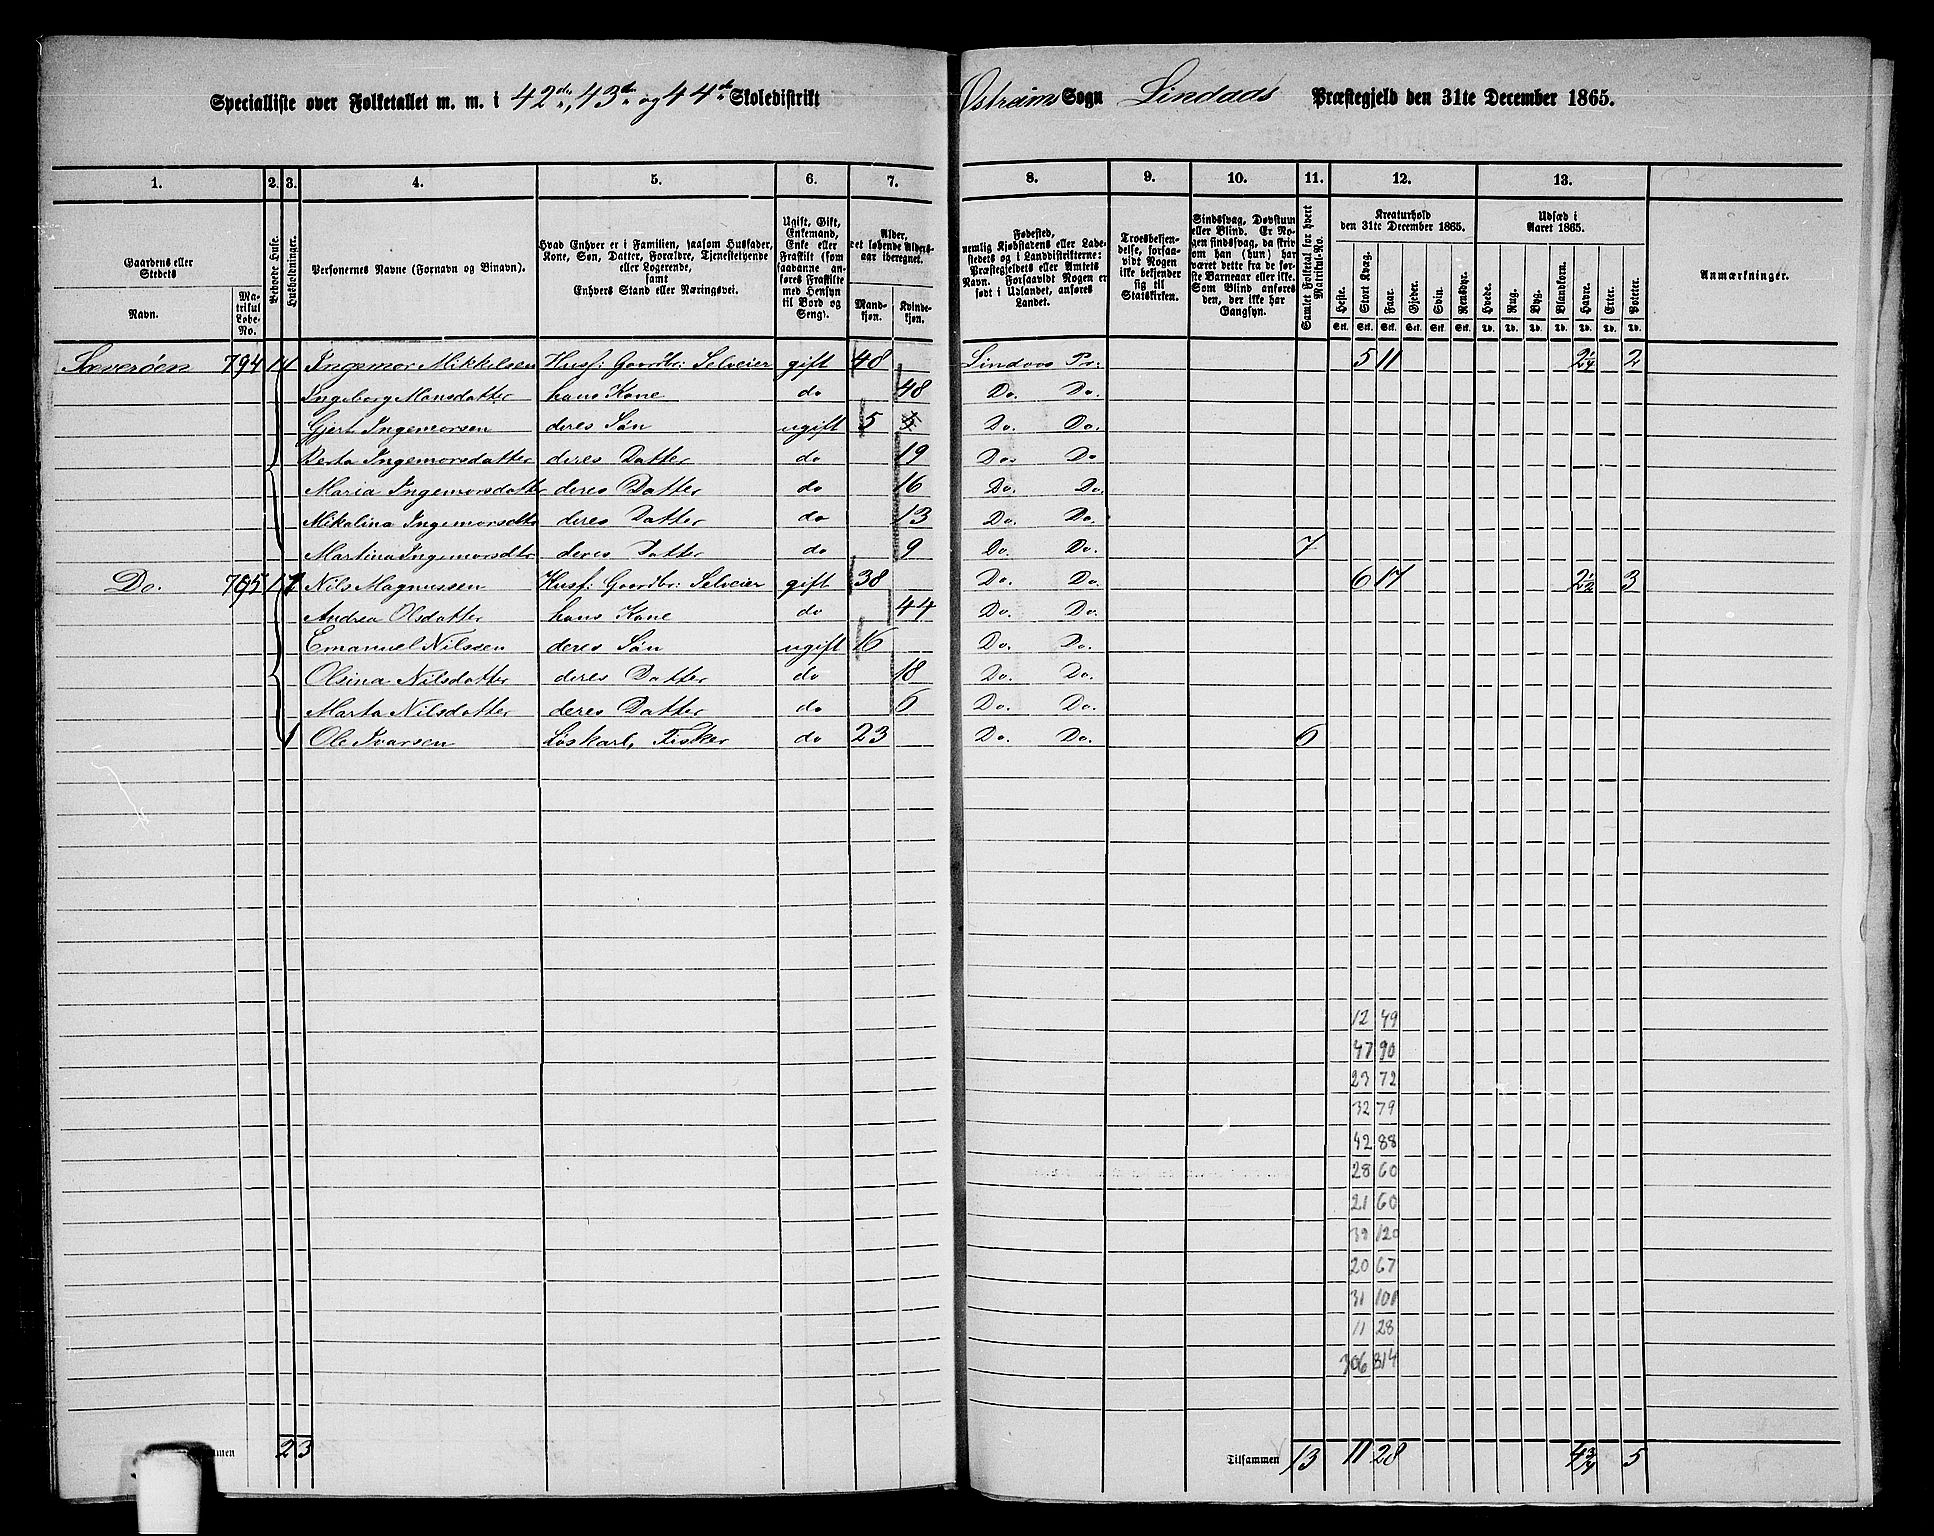 Specialliste over Folketallet m. m. i 42de, 43de og 44de Skoledistrikt Østreims Sogn Lindaas Præstegjeld den 31te December 1865.
1. 2. 3. 4. 5. 6. 7. 8. 9. 10. 11. 12. 13.
Gaardens eller Stedets
Navn.
Matrikul Løbe-No.
Beboede Huse.
Husholdninger.
Personernes Navne (Fornavn og Binavn).
Hvad Enhver er i Familien, saasom Husfader, Kone, Søn, Datter, Forældre, Tjenestetyende eller Logerende,
samt
Enhvers Stand eller Næringsvei.
Ugift, Gift, Enkemand, Enke eller Fraskilt (som saadanne anføres Fraskilte med Hensyn til Bord og Seng).
Alder, det løbende Alders-aar iberegnet.
Mandkjøn. Kvindekjøn.
Fødested,
nemlig Kjøbstadens eller Ladestedets og i Landdistrikterne: Præstegjeldets eller Amtets Navn. Forsaavidt Nogen er født i Udlandet, anføres Landet.
Troesbekjendelse, forsaavidt Nogen ikke bekjender sig til Statskirken.
Sindssvag, Døvstum eller Blind. Er Nogen sindssvag, da skrives om han (hun) har været dette fra de første Barneaar eller ikke. Som Blind anføres den, der ikke har Gangsyn.
Samlet Folketal for hvert Matrikul-No.
Kreaturhold den 31te December 1865.
Heste. Stort Kvæg. Faar. Gjeder. Svin. Rensdyr.
Stk. Stk. Stk. Stk. Stk. Stk.
Udsæd i Aaret 1865.
Hvede. Rug. Byg. Blandkorn. Havre. Erter. Poteter.
Td. Td. Td. Td. Td. Td. Td.
Anmærkninger.
Sæverøen 794 1 1 Ingemor Mikkelsen Husf: Gaardbr: Selveier gift 48 Lindaas Pr: 5 11 2 1/4 2
Ingeborg Monsdatter hans Kone do 48 Do. Do.
Gjert Ingemorsen deres Søn ugift 5 Do. Do.
Berta Ingemorsdatter deres Datter do 19 Do. Do
Maria Ingemorsdatter deres Datter do 16 Do. Do.
Mikalina Ingemorsdtr deres Datter do 13 Do. Do.
Martina Ingemorsdtr deres Datter do 9 Do. Do. 7
Do. 795 1 1 Nils Magnussen Husf: Gaardbr: Selveier gift 38 Do. Do. 6 17 2 1/2 3
Andrea Olsdatter hans Kone do 44 Do. Do.
Emanuel Nilssen deres Søn ugift 16 Do. Do.
Olsina Nilsdatter deres Datter do 18 Do. Do.
Marta Nilsdatter deres Datter do 6 Do. Do.
1 Ole Ivarsen Løskarl, Fisker do 23 Do. Do. 6
12 49
47 90
23 72
32 79
42 88
28 60
21 60
39 120
20 67
31 101
11 28
306 814
2 3 Tilsammen 13 11 28 4 3/4 5